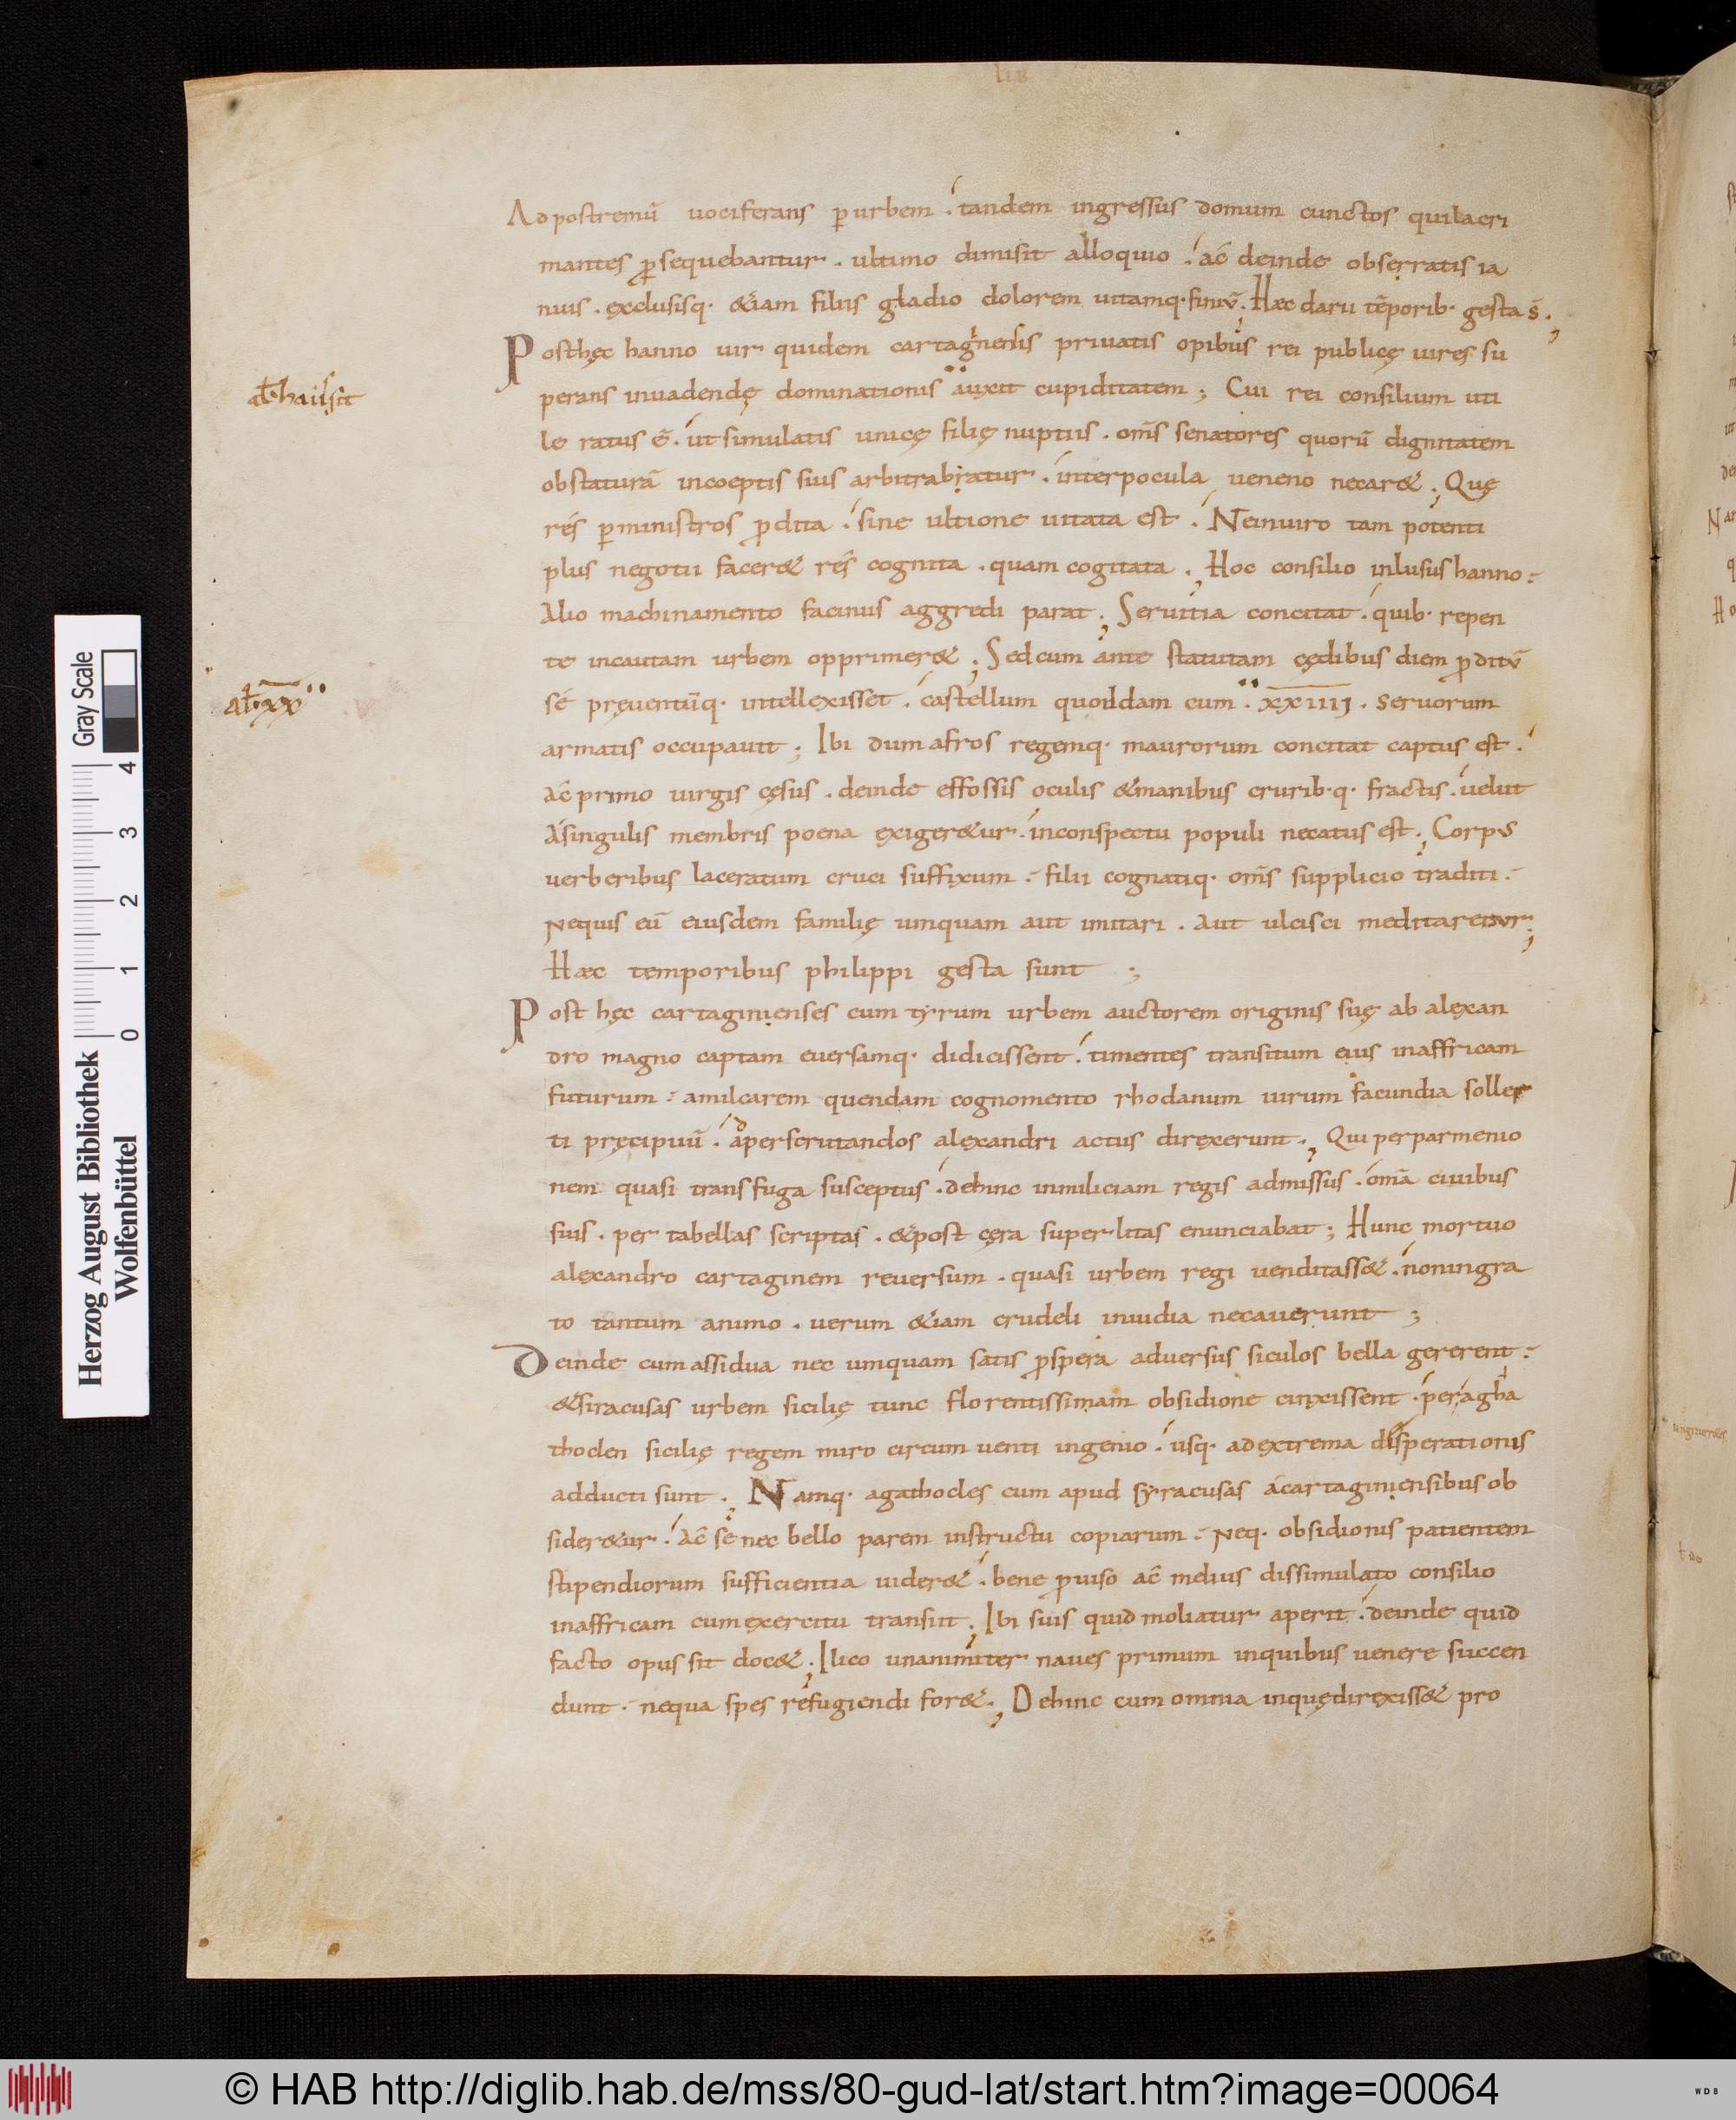 Ad postremū uociferans ꝑ urbem . tandem ingressus domum cunctos qui lacri
mantes ꝓsequebantur . ultimo dimisit alloquio . ac deinde obserratis ia
nuis . exclusisq· &iam filiis gladio dolorem uitamq· finiv̄ . Haec darii tēporib· gesta s̄ .
Post hęc hanno uir quidem cartaginensis priuatis opibus rei publicę uires su
perans inuadendę dominationis auxit cupiditatem ; Cui rei consilium uti
le ratus ē . ut simulatis unicę filię nuptiis . om̄s senatores quorū dignitatem
obstaturā incoeptis suis arbitrabratur . inter pocula ueneno necar& . Quę
res ꝑ ministros ꝓdita . sine ultione uitata est . Ne in uiro tam potenti
plus negotii facer& res cognita . quam cogitata . Hoc consilio inlusus hanno .
Alio machinamento facinus aggredi parat . Seruitia concitat . quib· repen
te incautam urbem opprimer& . Sed cum ante statutam cędibus diem ꝓditv̄
se pręuentūq· intellexisset . castellum quoddam cum . xxiiii . seruorum
armatis occupauit ; Ibi dum afros regemq· maurorum concitat captus est .
Ac primo uirgis cęsus . deinde effossis oculis & manibus crurib·q· fractis . uelut
A singulis membris poena exiger&ur . in conspectu populi necatus est . Corpus
uerberibus laceratum cruci suffixum . filii cognatiq· om̄s supplicio traditi .
Ne quis eū eiusdem familię umquam aut imitari . Aut ulcisci meditaretur ;
Haec temporibus philippi gesta sunt ;
Post hęc cartaginienses cum tyrum urbem auctorem originis suę ab alexan
dro magno captam euersamq· didicissent . timentes transitum eius in affricam
futurum . amilcarem quendam cognomento rhodanum uirum facundia soller
ti pręcipuū . ad perscrutandos alexandri actus direxerunt . Qui per parmenio
nem quasi transfuga susceptus . dehinc in miliciam regis admissus . om̄a ciuibus
suis . per tabellas scriptas . & post cęra superlitas enunciabat ; Hunc mortuo
alexandro cartaginem reuersum . quasi urbem regi uenditass& . non ingra
to tantum animo . uerum &iam crudeli inuidia necauerunt ;
Deinde cum assidua nec umquam satis ꝓspera aduersus siculos bella gererent .
& siracusas urbem sicilię tunc florentissimam obsidione cinxissent . per agha
thoclen sicilię regem miro circumuenti ingenio . usq· ad extrema disperationis
adducti sunt . Namq· agathocles cum apud syracusas a cartaginiensibus ob
sider&ur . Ac se nec bello parem instructu copiarum . Neq· obsidionis patientem
stipendiorum sufficientia uider& . bene ꝓuiso ac melius dissimulato consilio
in affricam cum exercitu transiit . Ibi suis quid moliatur aperit . deinde quid
facto opus sit doc& . Ilico unanimiter naues primum in quibus uenere succen
dunt . ne qua spes refugiendi for& . Dehinc cum omnia in quę direxiss& pro
at· hausit
at· xx
Gray Scale
0 1 2 3 4
Herzog August Bibliothek
Wolfenbüttel
© HAB http://diglib.hab.de/mss/80-gud-lat/start.htm?image=00064
WDB